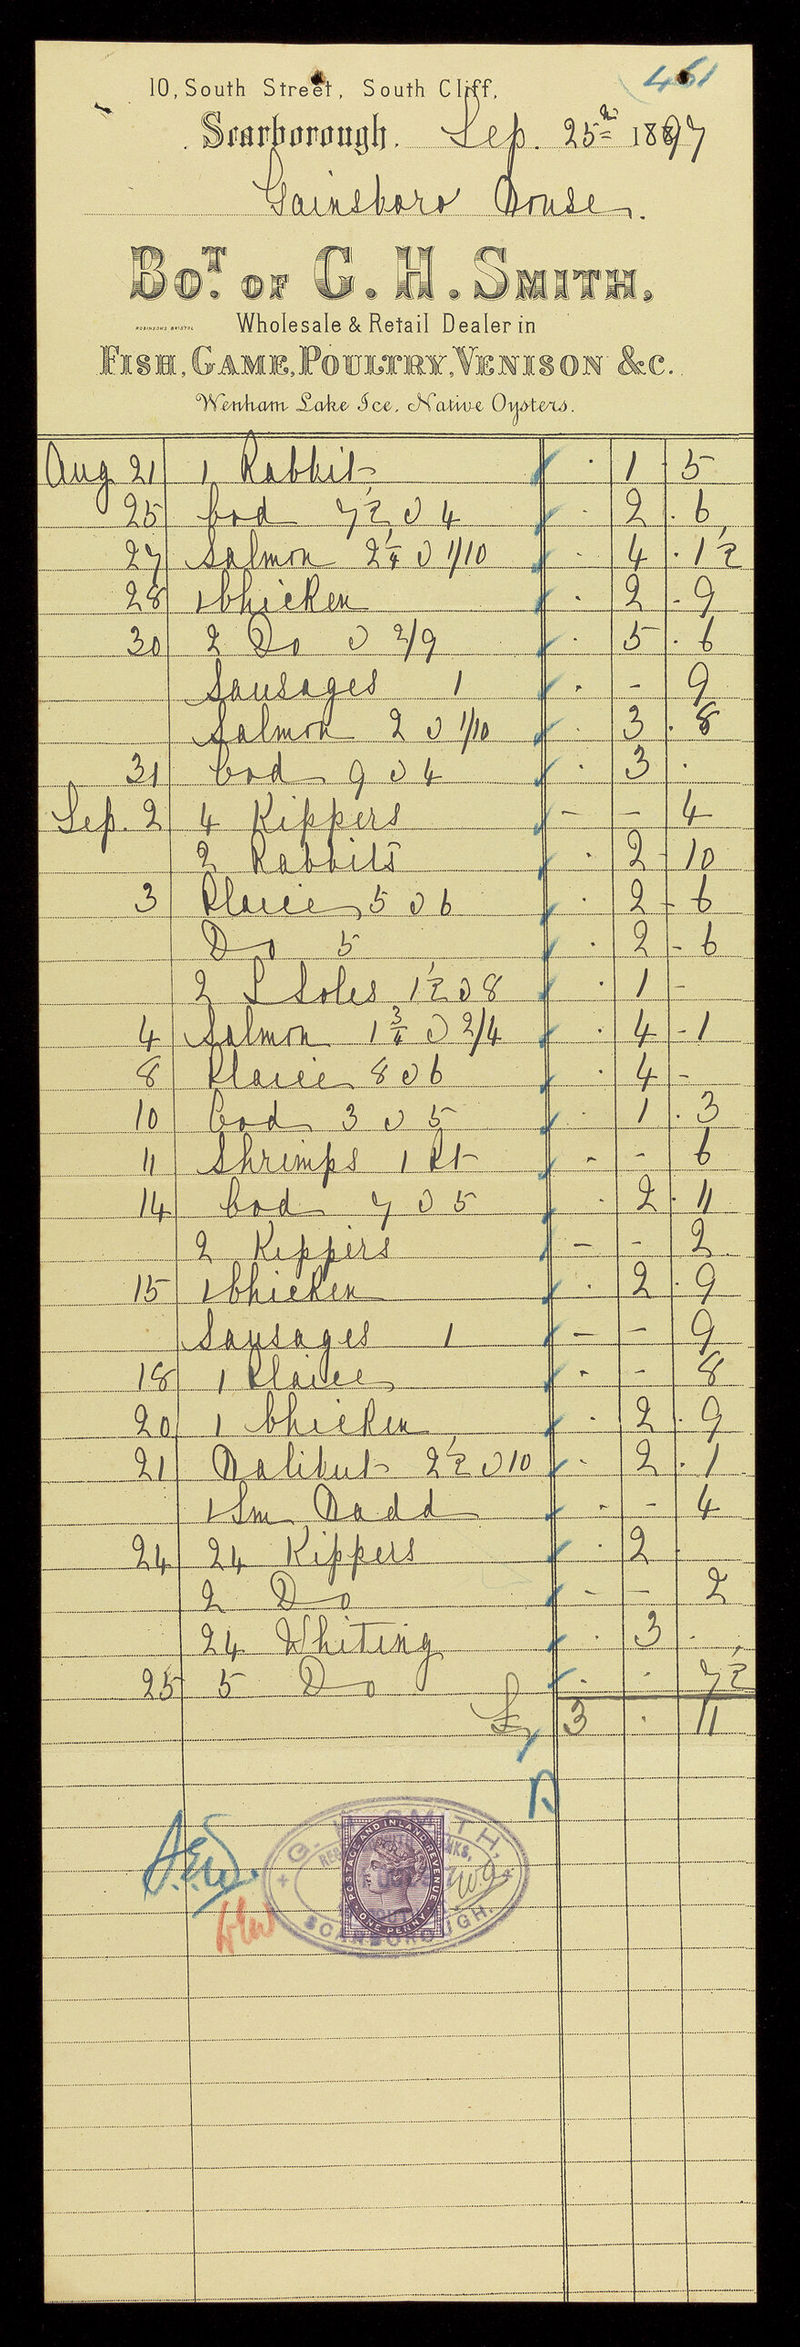 461
10, South Street, South Cliff,
Scarborough. Sep. 25th 1897
Gainsboro House.
Bot. of G. H. Smith,
Robinsons Bristol
Wholesale & Retail Dealer in
Fish, Game, Poultry, Venison &c.
Wenham Lake Ice, Native Oysters.
Aug 21 1 Rabbit . 1 . 5
25 Cod 7½ @ 4 . 2 . 6
27 Salmon 2¼ @ 1/10 . 4 . 1½
28 1 Chicken . 2 - 9
30 2 Do @ 2/9 . 5 . 6
Sausages 1 . - 9
Salmon 2 @ 1/10 . 3 . 8
31 Cod 9 @ 4 . 3 .
Sep. 2 4 Kippers - - 4
2 Rabbits . 2 - 10
3 Plaice 5 @ 6 . 2 - 6
Do 5 . 2 - 6
2 L Soles 1½ @ 8 . 1 -
4 Salmon 1¾ @ 2/4 . 4 - 1
8 Plaice 8 @ 6 . 4 -
10 Cod 3 @ 5 . 1 . 3
11 Shrimps 1 Pt - - 6
14 Cod 7 @ 5 . 2 . 11
2 Kippers - - 2
15 1 Chicken . 2 . 9
Sausages 1 - - 9
18 1 Plaice . - 8
20 1 Chicken . 2 . 9
21 Halibut 2½ @ 10 . 2 . 1
1 Sm Hadd . - 4
24 24 Kippers . 2 .
2 Do - - 2
24 Whiting . 3 .
25 5 Do . . 7½
£ 3 . 11
G. H. SMITH,
POSTAGE AND INLAND REVENUE
ONE PENNY
SCARBOROUGH.